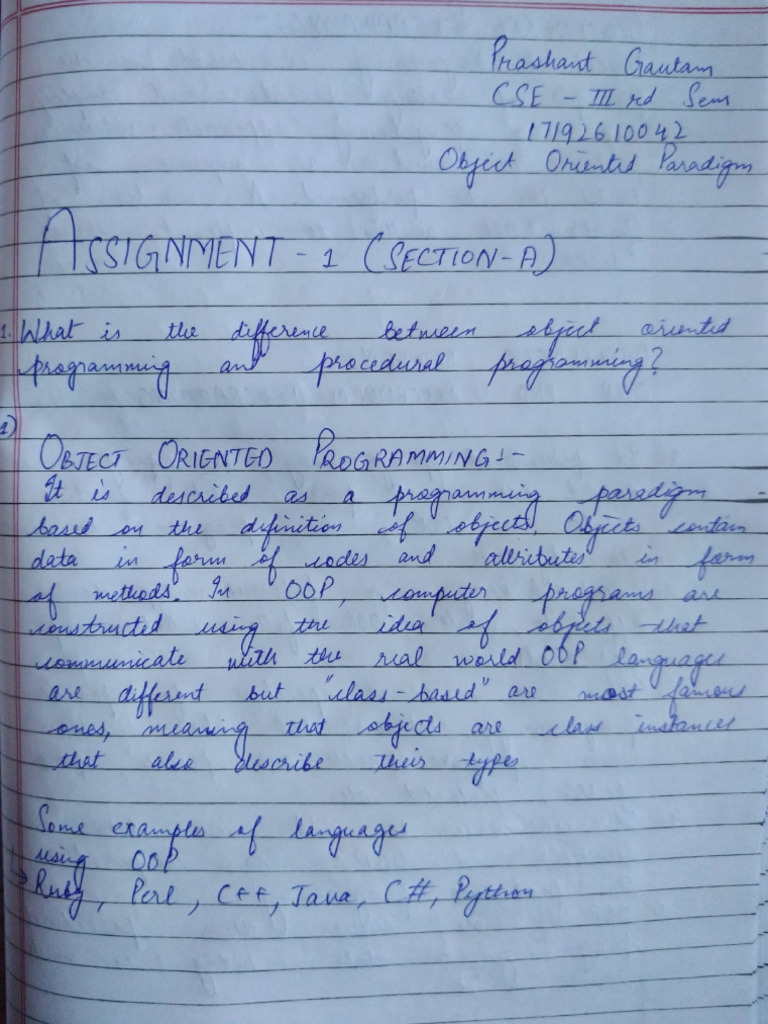 Prashant Gautam
CSE - III rd Sem
17192610042
Object Oriented Paradigm
ASSIGNMENT - 1 (SECTION-A)
1. What is the difference between object oriented
programming and procedural programming?
1)
OBJECT ORIENTED PROGRAMMING:-
It is described as a programming paradigm
based on the definition of objects. Objects contain
data in form of codes and attributes in form
of methods. In OOP, computer programs are
constructed using the idea of objects that
communicate with the real world OOP languages
are different but "class-based" are most famous
ones, meaning that objects are class instances
that also describe their types
Some examples of languages
using OOP
→ Ruby, Perl, C++, Java, C#, Python